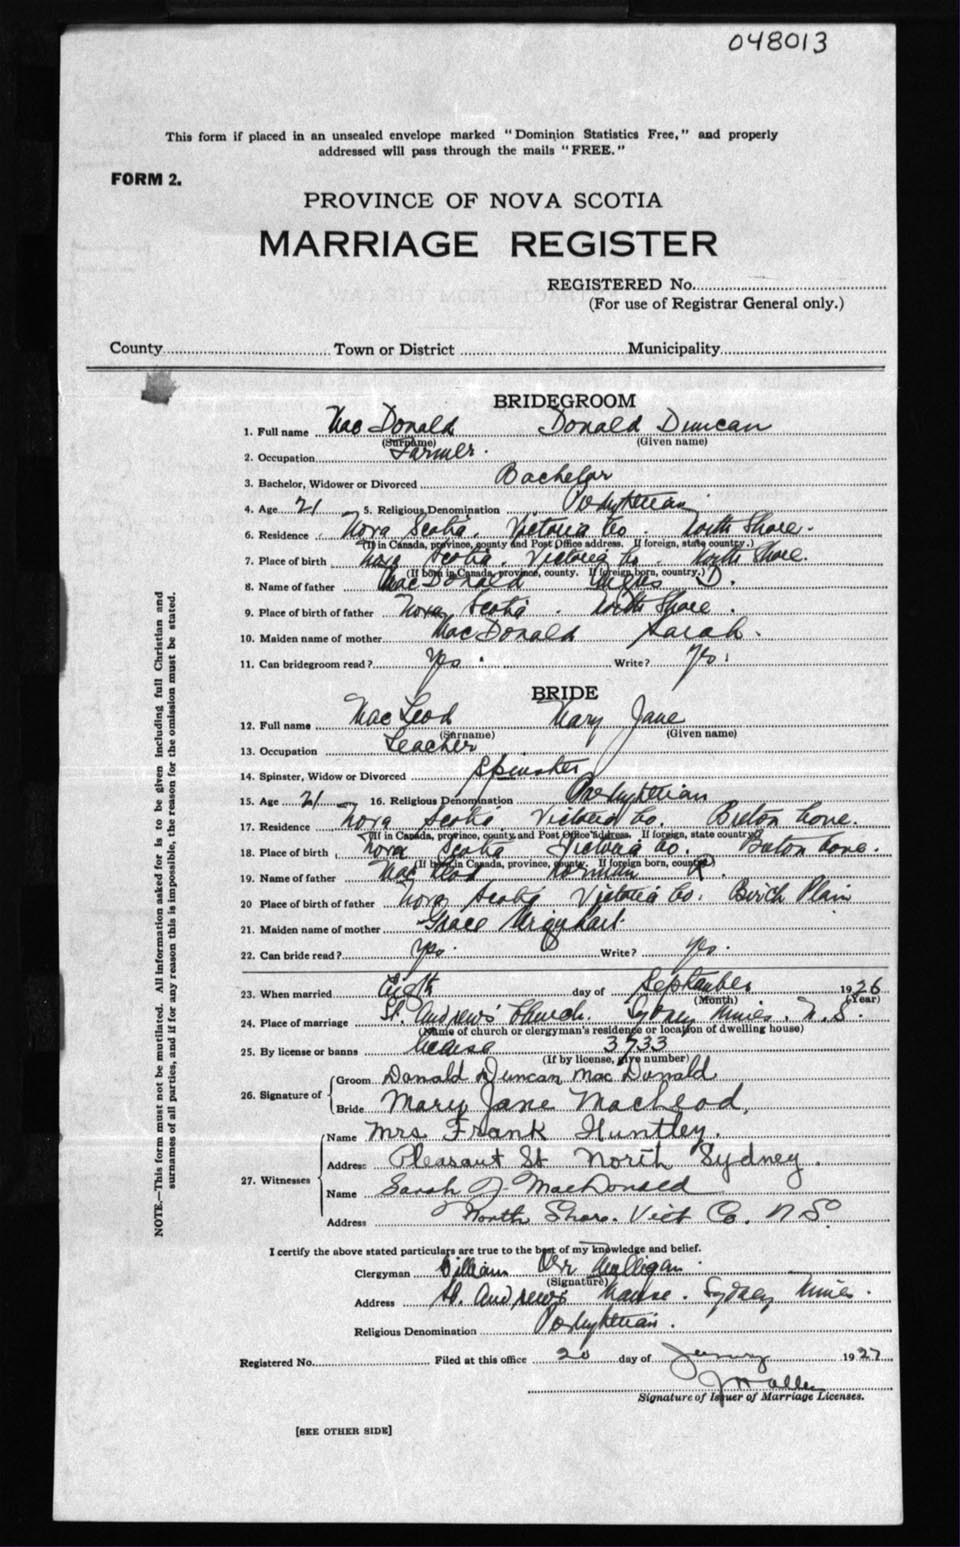 048013
This form if placed in an unsealed envelope marked "Dominion Statistics Free," and properly
addressed will pass through the mails "FREE."
FORM 2.
PROVINCE OF NOVA SCOTIA
MARRIAGE REGISTER
REGISTERED No.
(For use of Registrar General only.)
County Town or District Municipality
BRIDEGROOM
1. Full name MacDonald Donald Duncan
(Surname) (Given name)
2. Occupation Farmer.
3. Bachelor, Widower or Divorced Bachelor
4. Age 21 5. Religious Denomination Presbyterian
6. Residence Nova Scotia. Victoria Co. North Shore.
(If in Canada, province, county and Post Office address. If foreign, state country.)
7. Place of birth Nova Scotia. Victoria Co. North Shore.
(If born in Canada, province, county. If foreign born, country.)
8. Name of father MacDonald D.
9. Place of birth of father Nova Scotia. North Shore.
10. Maiden name of mother MacDonald Sarah.
11. Can bridegroom read? Yes. Write? Yes.
BRIDE
12. Full name MacLeod Mary Jane
(Surname) (Given name)
13. Occupation Teacher
14. Spinster, Widow or Divorced Spinster
15. Age 21 16. Religious Denomination Presbyterian
17. Residence Nova Scotia Victoria Co. Breton Cove.
(If in Canada, province, county, and Post Office address. If foreign, state country)
18. Place of birth Nova Scotia Victoria Co. Breton Cove.
(If born in Canada, province, county. If foreign born, country)
19. Name of father MacLeod Norman R.
20 Place of birth of father Nova Scotia Victoria Co. Birch Plain
21. Maiden name of mother Grace Urquhart
22. Can bride read? Yes. Write? Yes.
23. When married Eighth day of September 1926
(Month) (Year)
24. Place of marriage St. Andrew's Church. Sydney Mines. N.S.
(Name of church or clergyman's residence or location of dwelling house)
25. By license or banns license 3733
(If by license, give number)
26. Signature of
Groom Donald Duncan MacDonald
Bride Mary Jane MacLeod,
27. Witnesses
Name Mrs Frank Huntley.
Address Pleasant St North Sydney.
Name Sarah J. MacDonald
Address North Shore. Vict Co. N.S.
I certify the above stated particulars are true to the best of my knowledge and belief.
Clergyman William Orr Mulligan
(Signature)
Address St. Andrew's Manse. Sydney Mines.
Religious Denomination Presbyterian.
Registered No. Filed at this office 20 day of January 1927
Signature of Issuer of Marriage Licenses.
[SEE OTHER SIDE]
NOTE.—This form must not be mutilated. All information asked for is to be given including full Christian and
surnames of all parties, and if for any reason this is impossible, the reason for the omission must be stated.